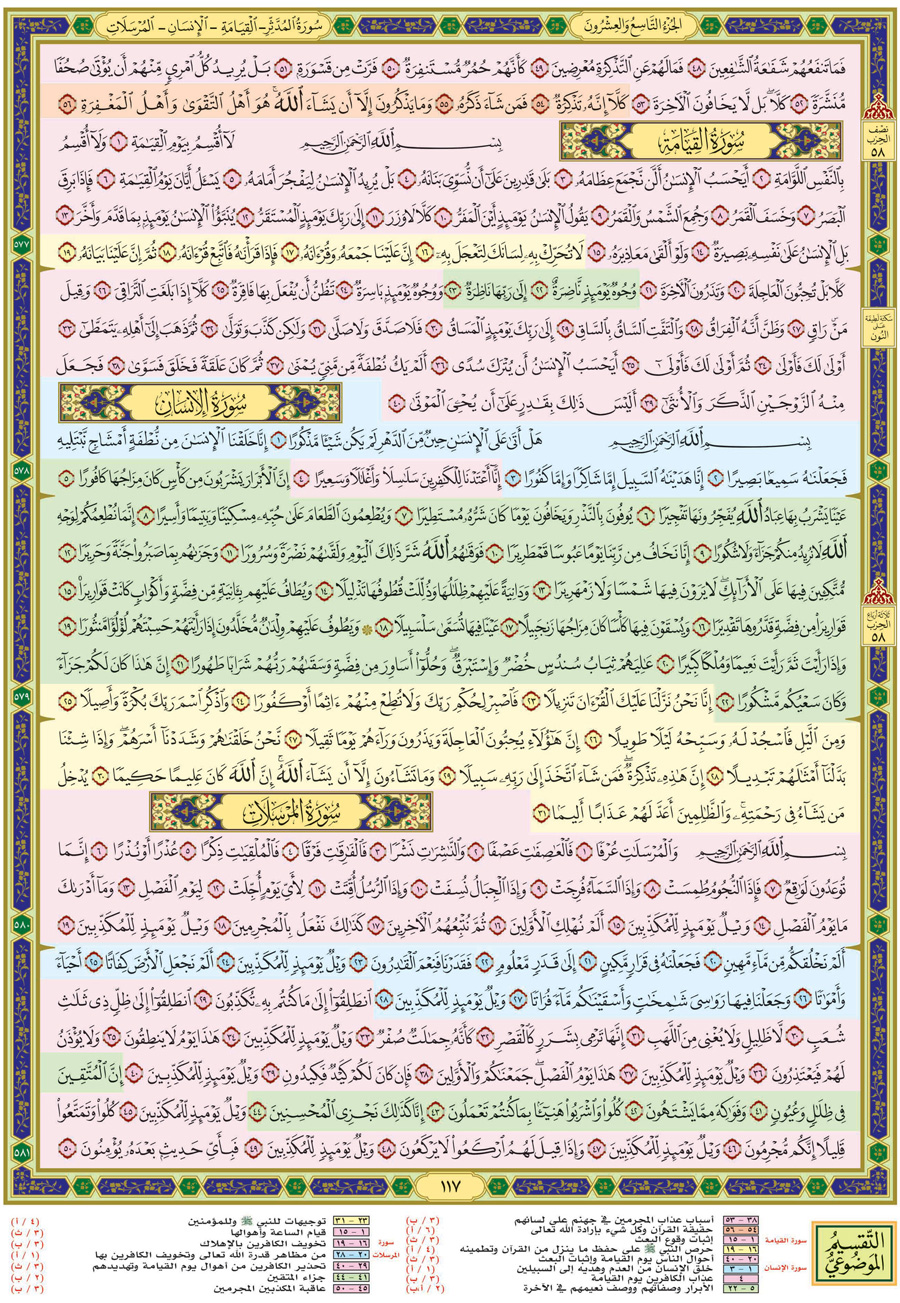 الجُزْءُ التَّاسِعُ وَالعِشْرُونَ
سُورَةُ المُدَّثِّرِ - القِيَامَةِ - الإِنسَانِ - المُرْسَلَاتِ
فَمَا تَنفَعُهُمْ شَفَٰعَةُ ٱلشَّٰفِعِينَ ٤٨ فَمَا لَهُمْ عَنِ ٱلتَّذْكِرَةِ مُعْرِضِينَ ٤٩ كَأَنَّهُمْ حُمُرٌ مُّسْتَنفِرَةٌ ٥٠ فَرَّتْ مِن قَسْوَرَةٍۭ ٥١ بَلْ يُرِيدُ كُلُّ ٱمْرِئٍ مِّنْهُمْ أَن يُؤْتَىٰ صُحُفًا
مُّنَشَّرَةً ٥٢ كَلَّا بَل لَّا يَخَافُونَ ٱلْءَاخِرَةَ ٥٣ كَلَّآ إِنَّهُۥ تَذْكِرَةٌ ٥٤ فَمَن شَآءَ ذَكَرَهُۥ ٥٥ وَمَا يَذْكُرُونَ إِلَّآ أَن يَشَآءَ ٱللَّهُ هُوَ أَهْلُ ٱلتَّقْوَىٰ وَأَهْلُ ٱلْمَغْفِرَةِ ٥٦
سُورَةُ القِيَامَةِ
بِسْمِ ٱللَّهِ ٱلرَّحْمَٰنِ ٱلرَّحِيمِ لَآ أُقْسِمُ بِيَوْمِ ٱلْقِيَٰمَةِ ١ وَلَآ أُقْسِمُ
بِٱلنَّفْسِ ٱللَّوَّامَةِ ٢ أَيَحْسَبُ ٱلْإِنسَٰنُ أَلَّن نَّجْمَعَ عِظَامَهُۥ ٣ بَلَىٰ قَٰدِرِينَ عَلَىٰٓ أَن نُّسَوِّىَ بَنَانَهُۥ ٤ بَلْ يُرِيدُ ٱلْإِنسَٰنُ لِيَفْجُرَ أَمَامَهُۥ ٥ يَسْـَٔلُ أَيَّانَ يَوْمُ ٱلْقِيَٰمَةِ ٦ فَإِذَا بَرِقَ
ٱلْبَصَرُ ٧ وَخَسَفَ ٱلْقَمَرُ ٨ وَجُمِعَ ٱلشَّمْسُ وَٱلْقَمَرُ ٩ يَقُولُ ٱلْإِنسَٰنُ يَوْمَئِذٍ أَيْنَ ٱلْمَفَرُّ ١٠ كَلَّا لَا وَزَرَ ١١ إِلَىٰ رَبِّكَ يَوْمَئِذٍ ٱلْمُسْتَقَرُّ ١٢ يُنَبَّؤُا۟ ٱلْإِنسَٰنُ يَوْمَئِذٍۭ بِمَا قَدَّمَ وَأَخَّرَ ١٣
بَلِ ٱلْإِنسَٰنُ عَلَىٰ نَفْسِهِۦ بَصِيرَةٌ ١٤ وَلَوْ أَلْقَىٰ مَعَاذِيرَهُۥ ١٥ لَا تُحَرِّكْ بِهِۦ لِسَانَكَ لِتَعْجَلَ بِهِۦٓ ١٦ إِنَّ عَلَيْنَا جَمْعَهُۥ وَقُرْءَانَهُۥ ١٧ فَإِذَا قَرَأْنَٰهُ فَٱتَّبِعْ قُرْءَانَهُۥ ١٨ ثُمَّ إِنَّ عَلَيْنَا بَيَانَهُۥ ١٩
كَلَّا بَلْ تُحِبُّونَ ٱلْعَاجِلَةَ ٢٠ وَتَذَرُونَ ٱلْءَاخِرَةَ ٢١ وُجُوهٌ يَوْمَئِذٍ نَّاضِرَةٌ ٢٢ إِلَىٰ رَبِّهَا نَاظِرَةٌ ٢٣ وَوُجُوهٌ يَوْمَئِذٍۭ بَاسِرَةٌ ٢٤ تَظُنُّ أَن يُفْعَلَ بِهَا فَاقِرَةٌ ٢٥ كَلَّآ إِذَا بَلَغَتِ ٱلتَّرَاقِىَ ٢٦ وَقِيلَ
مَنْ رَاقٍ ٢٧ وَظَنَّ أَنَّهُ ٱلْفِرَاقُ ٢٨ وَٱلْتَفَّتِ ٱلسَّاقُ بِٱلسَّاقِ ٢٩ إِلَىٰ رَبِّكَ يَوْمَئِذٍ ٱلْمَسَاقُ ٣٠ فَلَا صَدَّقَ وَلَا صَلَّىٰ ٣١ وَلَٰكِن كَذَّبَ وَتَوَلَّىٰ ٣٢ ثُمَّ ذَهَبَ إِلَىٰٓ أَهْلِهِۦ يَتَمَطَّىٰٓ ٣٣
أَوْلَىٰ لَكَ فَأَوْلَىٰ ٣٤ ثُمَّ أَوْلَىٰ لَكَ فَأَوْلَىٰٓ ٣٥ أَيَحْسَبُ ٱلْإِنسَٰنُ أَن يُتْرَكَ سُدًى ٣٦ أَلَمْ يَكُ نُطْفَةً مِّن مَّنِىٍّ يُمْنَىٰ ٣٧ ثُمَّ كَانَ عَلَقَةً فَخَلَقَ فَسَوَّىٰ ٣٨ فَجَعَلَ
مِنْهُ ٱلزَّوْجَيْنِ ٱلذَّكَرَ وَٱلْأُنثَىٰٓ ٣٩ أَلَيْسَ ذَٰلِكَ بِقَٰدِرٍ عَلَىٰٓ أَن يُحْـِۧىَ ٱلْمَوْتَىٰ ٤٠
سُورَةُ الإِنسَانِ
بِسْمِ ٱللَّهِ ٱلرَّحْمَٰنِ ٱلرَّحِيمِ هَلْ أَتَىٰ عَلَى ٱلْإِنسَٰنِ حِينٌ مِّنَ ٱلدَّهْرِ لَمْ يَكُن شَيْـًٔا مَّذْكُورًا ١ إِنَّا خَلَقْنَا ٱلْإِنسَٰنَ مِن نُّطْفَةٍ أَمْشَاجٍ نَّبْتَلِيهِ
فَجَعَلْنَٰهُ سَمِيعًۢا بَصِيرًا ٢ إِنَّا هَدَيْنَٰهُ ٱلسَّبِيلَ إِمَّا شَاكِرًا وَإِمَّا كَفُورًا ٣ إِنَّآ أَعْتَدْنَا لِلْكَٰفِرِينَ سَلَٰسِلَا۟ وَأَغْلَٰلًا وَسَعِيرًا ٤ إِنَّ ٱلْأَبْرَارَ يَشْرَبُونَ مِن كَأْسٍ كَانَ مِزَاجُهَا كَافُورًا ٥
عَيْنًا يَشْرَبُ بِهَا عِبَادُ ٱللَّهِ يُفَجِّرُونَهَا تَفْجِيرًا ٦ يُوفُونَ بِٱلنَّذْرِ وَيَخَافُونَ يَوْمًا كَانَ شَرُّهُۥ مُسْتَطِيرًا ٧ وَيُطْعِمُونَ ٱلطَّعَامَ عَلَىٰ حُبِّهِۦ مِسْكِينًا وَيَتِيمًا وَأَسِيرًا ٨ إِنَّمَا نُطْعِمُكُمْ لِوَجْهِ
ٱللَّهِ لَا نُرِيدُ مِنكُمْ جَزَآءً وَلَا شُكُورًا ٩ إِنَّا نَخَافُ مِن رَّبِّنَا يَوْمًا عَبُوسًا قَمْطَرِيرًا ١٠ فَوَقَىٰهُمُ ٱللَّهُ شَرَّ ذَٰلِكَ ٱلْيَوْمِ وَلَقَّىٰهُمْ نَضْرَةً وَسُرُورًا ١١ وَجَزَىٰهُم بِمَا صَبَرُوا۟ جَنَّةً وَحَرِيرًا ١٢
مُّتَّكِـِٔينَ فِيهَا عَلَى ٱلْأَرَآئِكِ لَا يَرَوْنَ فِيهَا شَمْسًا وَلَا زَمْهَرِيرًا ١٣ وَدَانِيَةً عَلَيْهِمْ ظِلَٰلُهَا وَذُلِّلَتْ قُطُوفُهَا تَذْلِيلًا ١٤ وَيُطَافُ عَلَيْهِم بِـَٔانِيَةٍ مِّن فِضَّةٍ وَأَكْوَابٍ كَانَتْ قَوَارِيرَا۠ ١٥
قَوَارِيرَا۟ مِن فِضَّةٍ قَدَّرُوهَا تَقْدِيرًا ١٦ وَيُسْقَوْنَ فِيهَا كَأْسًا كَانَ مِزَاجُهَا زَنجَبِيلًا ١٧ عَيْنًا فِيهَا تُسَمَّىٰ سَلْسَبِيلًا ١٨ ۞ وَيَطُوفُ عَلَيْهِمْ وِلْدَٰنٌ مُّخَلَّدُونَ إِذَا رَأَيْتَهُمْ حَسِبْتَهُمْ لُؤْلُؤًا مَّنثُورًا ١٩
وَإِذَا رَأَيْتَ ثَمَّ رَأَيْتَ نَعِيمًا وَمُلْكًا كَبِيرًا ٢٠ عَٰلِيَهُمْ ثِيَابُ سُندُسٍ خُضْرٌ وَإِسْتَبْرَقٌ وَحُلُّوٓا۟ أَسَاوِرَ مِن فِضَّةٍ وَسَقَىٰهُمْ رَبُّهُمْ شَرَابًا طَهُورًا ٢١ إِنَّ هَٰذَا كَانَ لَكُمْ جَزَآءً
وَكَانَ سَعْيُكُم مَّشْكُورًا ٢٢ إِنَّا نَحْنُ نَزَّلْنَا عَلَيْكَ ٱلْقُرْءَانَ تَنزِيلًا ٢٣ فَٱصْبِرْ لِحُكْمِ رَبِّكَ وَلَا تُطِعْ مِنْهُمْ ءَاثِمًا أَوْ كَفُورًا ٢٤ وَٱذْكُرِ ٱسْمَ رَبِّكَ بُكْرَةً وَأَصِيلًا ٢٥
وَمِنَ ٱلَّيْلِ فَٱسْجُدْ لَهُۥ وَسَبِّحْهُ لَيْلًا طَوِيلًا ٢٦ إِنَّ هَٰٓؤُلَآءِ يُحِبُّونَ ٱلْعَاجِلَةَ وَيَذَرُونَ وَرَآءَهُمْ يَوْمًا ثَقِيلًا ٢٧ نَّحْنُ خَلَقْنَٰهُمْ وَشَدَدْنَآ أَسْرَهُمْ وَإِذَا شِئْنَا
بَدَّلْنَآ أَمْثَٰلَهُمْ تَبْدِيلًا ٢٨ إِنَّ هَٰذِهِۦ تَذْكِرَةٌ فَمَن شَآءَ ٱتَّخَذَ إِلَىٰ رَبِّهِۦ سَبِيلًا ٢٩ وَمَا تَشَآءُونَ إِلَّآ أَن يَشَآءَ ٱللَّهُ إِنَّ ٱللَّهَ كَانَ عَلِيمًا حَكِيمًا ٣٠ يُدْخِلُ
مَن يَشَآءُ فِى رَحْمَتِهِۦ وَٱلظَّٰلِمِينَ أَعَدَّ لَهُمْ عَذَابًا أَلِيمًۢا ٣١
سُورَةُ المُرْسَلَاتِ
بِسْمِ ٱللَّهِ ٱلرَّحْمَٰنِ ٱلرَّحِيمِ وَٱلْمُرْسَلَٰتِ عُرْفًا ١ فَٱلْعَٰصِفَٰتِ عَصْفًا ٢ وَٱلنَّٰشِرَٰتِ نَشْرًا ٣ فَٱلْفَٰرِقَٰتِ فَرْقًا ٤ فَٱلْمُلْقِيَٰتِ ذِكْرًا ٥ عُذْرًا أَوْ نُذْرًا ٦ إِنَّمَا
تُوعَدُونَ لَوَٰقِعٌ ٧ فَإِذَا ٱلنُّجُومُ طُمِسَتْ ٨ وَإِذَا ٱلسَّمَآءُ فُرِجَتْ ٩ وَإِذَا ٱلْجِبَالُ نُسِفَتْ ١٠ وَإِذَا ٱلرُّسُلُ أُقِّتَتْ ١١ لِأَىِّ يَوْمٍ أُجِّلَتْ ١٢ لِيَوْمِ ٱلْفَصْلِ ١٣ وَمَآ أَدْرَىٰكَ
مَا يَوْمُ ٱلْفَصْلِ ١٤ وَيْلٌ يَوْمَئِذٍ لِّلْمُكَذِّبِينَ ١٥ أَلَمْ نُهْلِكِ ٱلْأَوَّلِينَ ١٦ ثُمَّ نُتْبِعُهُمُ ٱلْءَاخِرِينَ ١٧ كَذَٰلِكَ نَفْعَلُ بِٱلْمُجْرِمِينَ ١٨ وَيْلٌ يَوْمَئِذٍ لِّلْمُكَذِّبِينَ ١٩
أَلَمْ نَخْلُقكُّم مِّن مَّآءٍ مَّهِينٍ ٢٠ فَجَعَلْنَٰهُ فِى قَرَارٍ مَّكِينٍ ٢١ إِلَىٰ قَدَرٍ مَّعْلُومٍ ٢٢ فَقَدَرْنَا فَنِعْمَ ٱلْقَٰدِرُونَ ٢٣ وَيْلٌ يَوْمَئِذٍ لِّلْمُكَذِّبِينَ ٢٤ أَلَمْ نَجْعَلِ ٱلْأَرْضَ كِفَاتًا ٢٥ أَحْيَآءً
وَأَمْوَٰتًا ٢٦ وَجَعَلْنَا فِيهَا رَوَٰسِىَ شَٰمِخَٰتٍ وَأَسْقَيْنَٰكُم مَّآءً فُرَاتًا ٢٧ وَيْلٌ يَوْمَئِذٍ لِّلْمُكَذِّبِينَ ٢٨ ٱنطَلِقُوٓا۟ إِلَىٰ مَا كُنتُم بِهِۦ تُكَذِّبُونَ ٢٩ ٱنطَلِقُوٓا۟ إِلَىٰ ظِلٍّ ذِى ثَلَٰثِ
شُعَبٍ ٣٠ لَّا ظَلِيلٍ وَلَا يُغْنِى مِنَ ٱللَّهَبِ ٣١ إِنَّهَا تَرْمِى بِشَرَرٍ كَٱلْقَصْرِ ٣٢ كَأَنَّهُۥ جِمَٰلَتٌ صُفْرٌ ٣٣ وَيْلٌ يَوْمَئِذٍ لِّلْمُكَذِّبِينَ ٣٤ هَٰذَا يَوْمُ لَا يَنطِقُونَ ٣٥ وَلَا يُؤْذَنُ
لَهُمْ فَيَعْتَذِرُونَ ٣٦ وَيْلٌ يَوْمَئِذٍ لِّلْمُكَذِّبِينَ ٣٧ هَٰذَا يَوْمُ ٱلْفَصْلِ جَمَعْنَٰكُمْ وَٱلْأَوَّلِينَ ٣٨ فَإِن كَانَ لَكُمْ كَيْدٌ فَكِيدُونِ ٣٩ وَيْلٌ يَوْمَئِذٍ لِّلْمُكَذِّبِينَ ٤٠ إِنَّ ٱلْمُتَّقِينَ
فِى ظِلَٰلٍ وَعُيُونٍ ٤١ وَفَوَٰكِهَ مِمَّا يَشْتَهُونَ ٤٢ كُلُوا۟ وَٱشْرَبُوا۟ هَنِيٓـًٔۢا بِمَا كُنتُمْ تَعْمَلُونَ ٤٣ إِنَّا كَذَٰلِكَ نَجْزِى ٱلْمُحْسِنِينَ ٤٤ وَيْلٌ يَوْمَئِذٍ لِّلْمُكَذِّبِينَ ٤٥ كُلُوا۟ وَتَمَتَّعُوا۟
قَلِيلًا إِنَّكُم مُّجْرِمُونَ ٤٦ وَيْلٌ يَوْمَئِذٍ لِّلْمُكَذِّبِينَ ٤٧ وَإِذَا قِيلَ لَهُمُ ٱرْكَعُوا۟ لَا يَرْكَعُونَ ٤٨ وَيْلٌ يَوْمَئِذٍ لِّلْمُكَذِّبِينَ ٤٩ فَبِأَىِّ حَدِيثٍۭ بَعْدَهُۥ يُؤْمِنُونَ ٥٠
نصف
الحزب
٥٨
سكتة لطيفة
على
النون
ثلاثة أرباع
الحزب
٥٨
٥٧٧
٥٧٨
٥٧٩
٥٨٠
٥٨١
١١٧
التَّقْسِيمُ
المَوْضُوعِيُّ
٣٨ – ٥٣ أسباب عذاب المجرمين في جهنم على لسانهم (٣ / ب)
٥٤ – ٥٦ حقيقة القرآن وكل شيء بإرادة الله تعالى (٦ / أ)
سورة القيامة
١ – ١٥ إثبات وقوع البعث (٣ / ث)
١٦ – ١٩ حرص النبي ﷺ على حفظ ما ينزل من القرآن وتطمينه (٤ / أ)
٢٠ – ٤٠ أحوال الناس يوم القيامة وإثبات البعث (٣ / ث)
سورة الإنسان
١ – ٣ خلق الإنسان من العدم وهديه إلى السبيلين (١ / أ)
٤ عذاب الكافرين يوم القيامة (٣ / ب)
٥ – ٢٢ الأبرار وصفاتهم ووصف نعيمهم في الآخرة (٢ / أ،ب)
٢٣ – ٣١ توجيهات للنبي ﷺ وللمؤمنين (٤ / أ)
سورة المرسلات
١ – ١٥ قيام الساعة وأهوالها (٣ / ث)
١٦ – ١٩ تخويف الكافرين بالإهلاك (٣ / ب)
٢٠ – ٢٨ من مظاهر قدرة الله تعالى وتخويف الكافرين بها (١ / أ)
٢٩ – ٤٠ تحذير الكافرين من أهوال يوم القيامة وتهديدهم (٣ / ث)
٤١ – ٤٤ جزاء المتقين (٢ / ب)
٤٥ – ٥٠ عاقبة المكذبين المجرمين (٣ / ب)